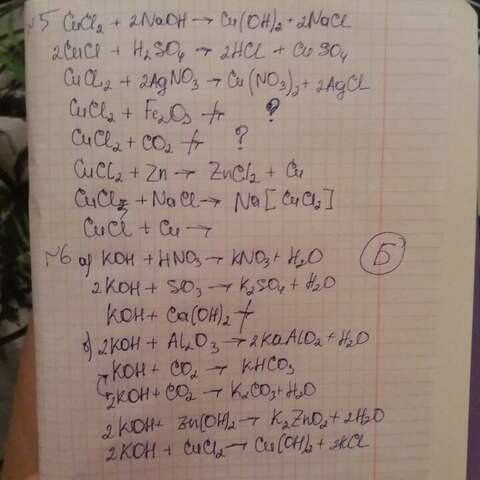 №5 CuCl₂ + 2NaOH → Cu(OH)₂ + 2NaCl
2CuCl + H₂SO₄ → 2HCl + CuSO₄
CuCl₂ + 2AgNO₃ → Cu(NO₃)₂ + 2AgCl
CuCl₂ + Fe₂O₃ ↛ ?
CuCl₂ + CO₂ ↛ ?
CuCl₂ + Zn → ZnCl₂ + Cu
CuCl₂ + NaCl → Na[CuCl₂]
CuCl + Cu →
№6 а) KOH + HNO₃ → KNO₃ + H₂O
Б
2KOH + SO₃ → K₂SO₄ + H₂O
KOH + Ca(OH)₂ ↛
б) 2KOH + Al₂O₃ → 2KAlO₂ + H₂O
KOH + CO₂ → KHCO₃
2KOH + CO₂ → K₂CO₃ + H₂O
2KOH + Zn(OH)₂ → K₂ZnO₂ + 2H₂O
2KOH + CuCl₂ → Cu(OH)₂ + 2KCl